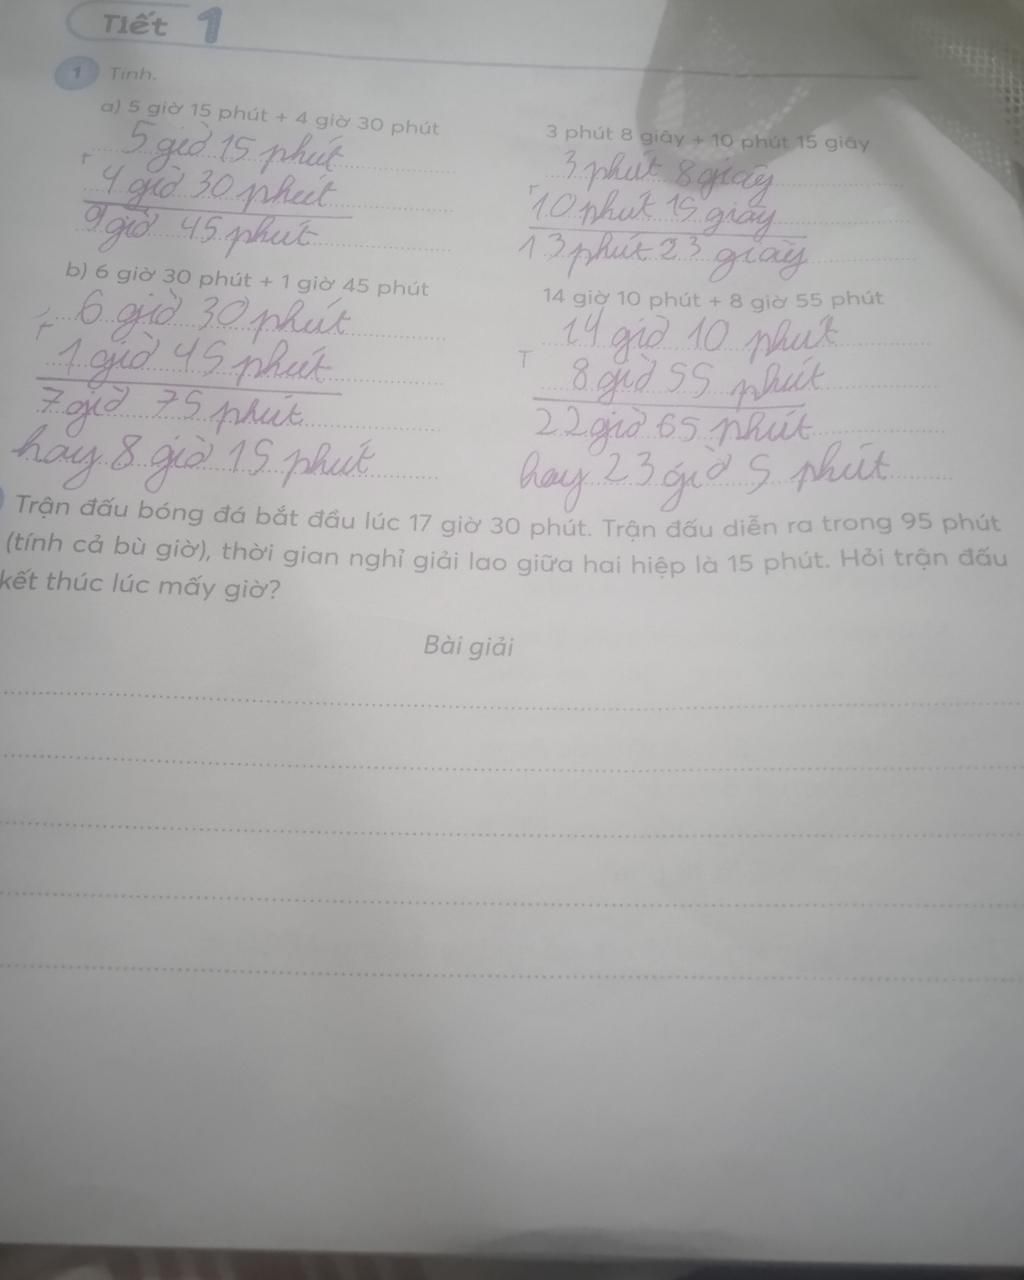 Tiết 1
1 Tính.
a) 5 giờ 15 phút + 4 giờ 30 phút
5 giờ 15 phút
+
4 giờ 30 phút
9 giờ 45 phút
3 phút 8 giây + 10 phút 15 giây
3 phút 8 giây
+
10 phút 15 giây
13 phút 23 giây
b) 6 giờ 30 phút + 1 giờ 45 phút
6 giờ 30 phút
+
1 giờ 45 phút
7 giờ 75 phút
hay 8 giờ 15 phút
14 giờ 10 phút + 8 giờ 55 phút
14 giờ 10 phút
+
8 giờ 55 phút
22 giờ 65 phút
hay 23 giờ 5 phút
Trận đấu bóng đá bắt đầu lúc 17 giờ 30 phút. Trận đấu diễn ra trong 95 phút
(tính cả bù giờ), thời gian nghỉ giải lao giữa hai hiệp là 15 phút. Hỏi trận đấu
kết thúc lúc mấy giờ?
Bài giải